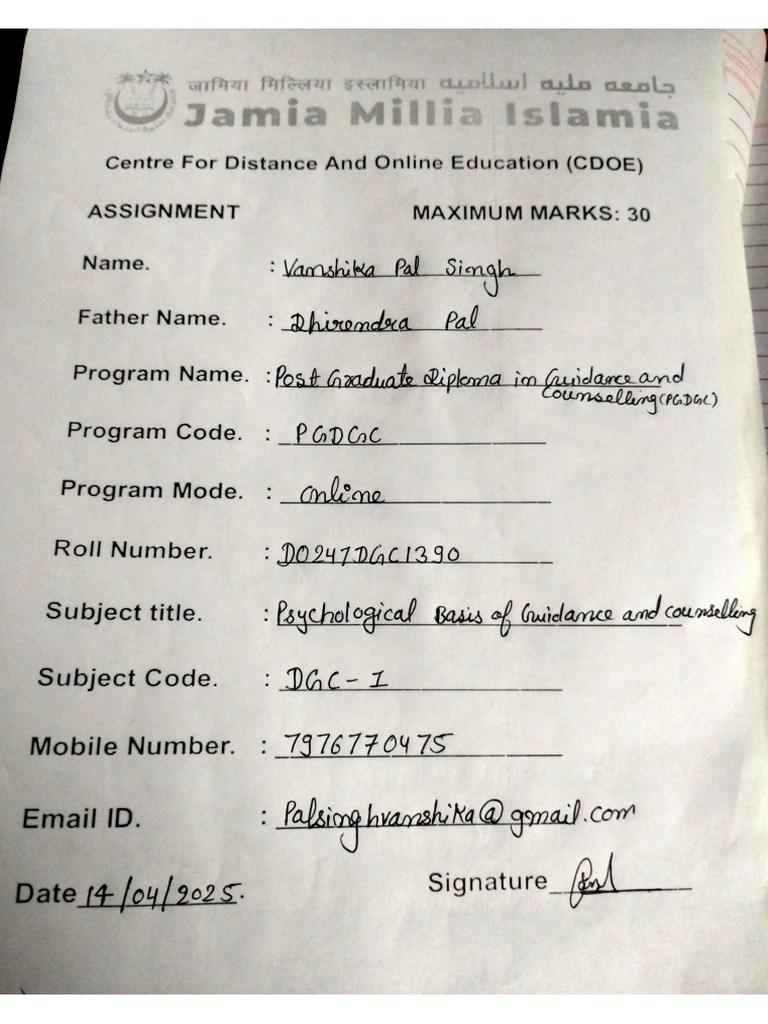 जामिया मिल्लिया इस्लामिया جامعه مليه اسلاميه
Jamia Millia Islamia
Centre For Distance And Online Education (CDOE)
ASSIGNMENT MAXIMUM MARKS: 30
Name. : Vanshika Pal Singh
Father Name. : Dhirendra Pal
Program Name. : Post Graduate Diploma in Guidance and
Counselling (PGDGC)
Program Code. : PGDGC
Program Mode. : Online
Roll Number. : D0247DGC1390
Subject title. : Psychological Basis of Guidance and counselling
Subject Code. : DGC-I
Mobile Number. : 7976770475
Email ID. : Palsinghvanshika@gmail.com
Date 14/04/2025. Signature